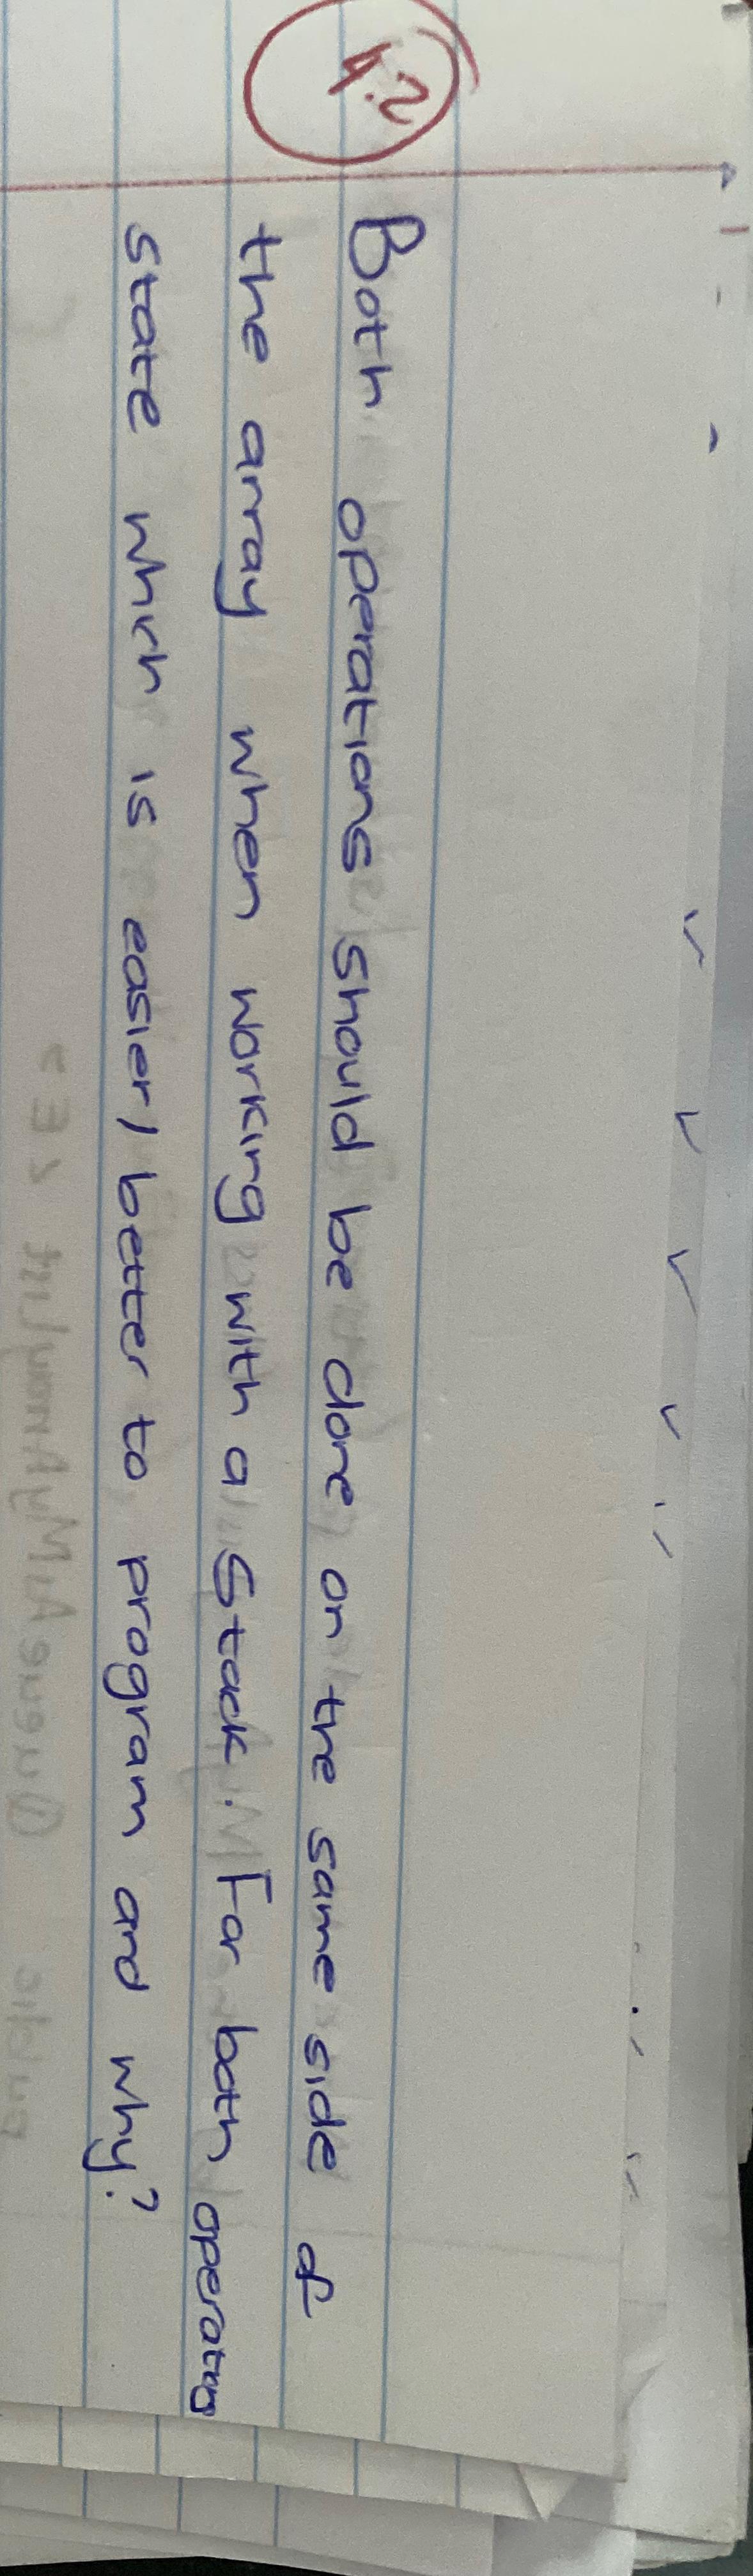 4.2
Both operations should be done on the same side of
the array when working with a stack. For both operations
state which is easier/better to program and why?